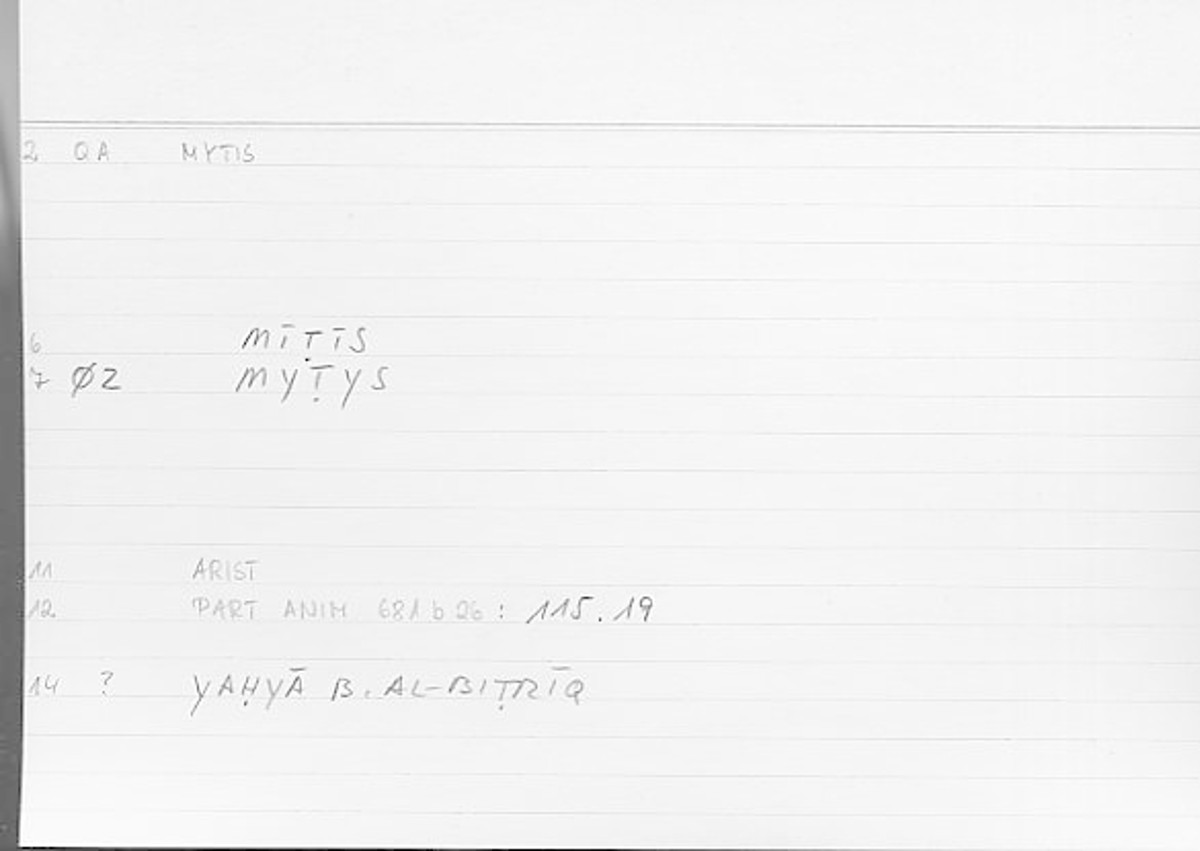 2 QA MYTIS
6 MĪṬĪS
7 ØZ MYṬYS
11 ARIST
12 PART ANIM 681 b 26 : 115.19
14 ? YAḤYĀ B. AL-BIṬRĪQ